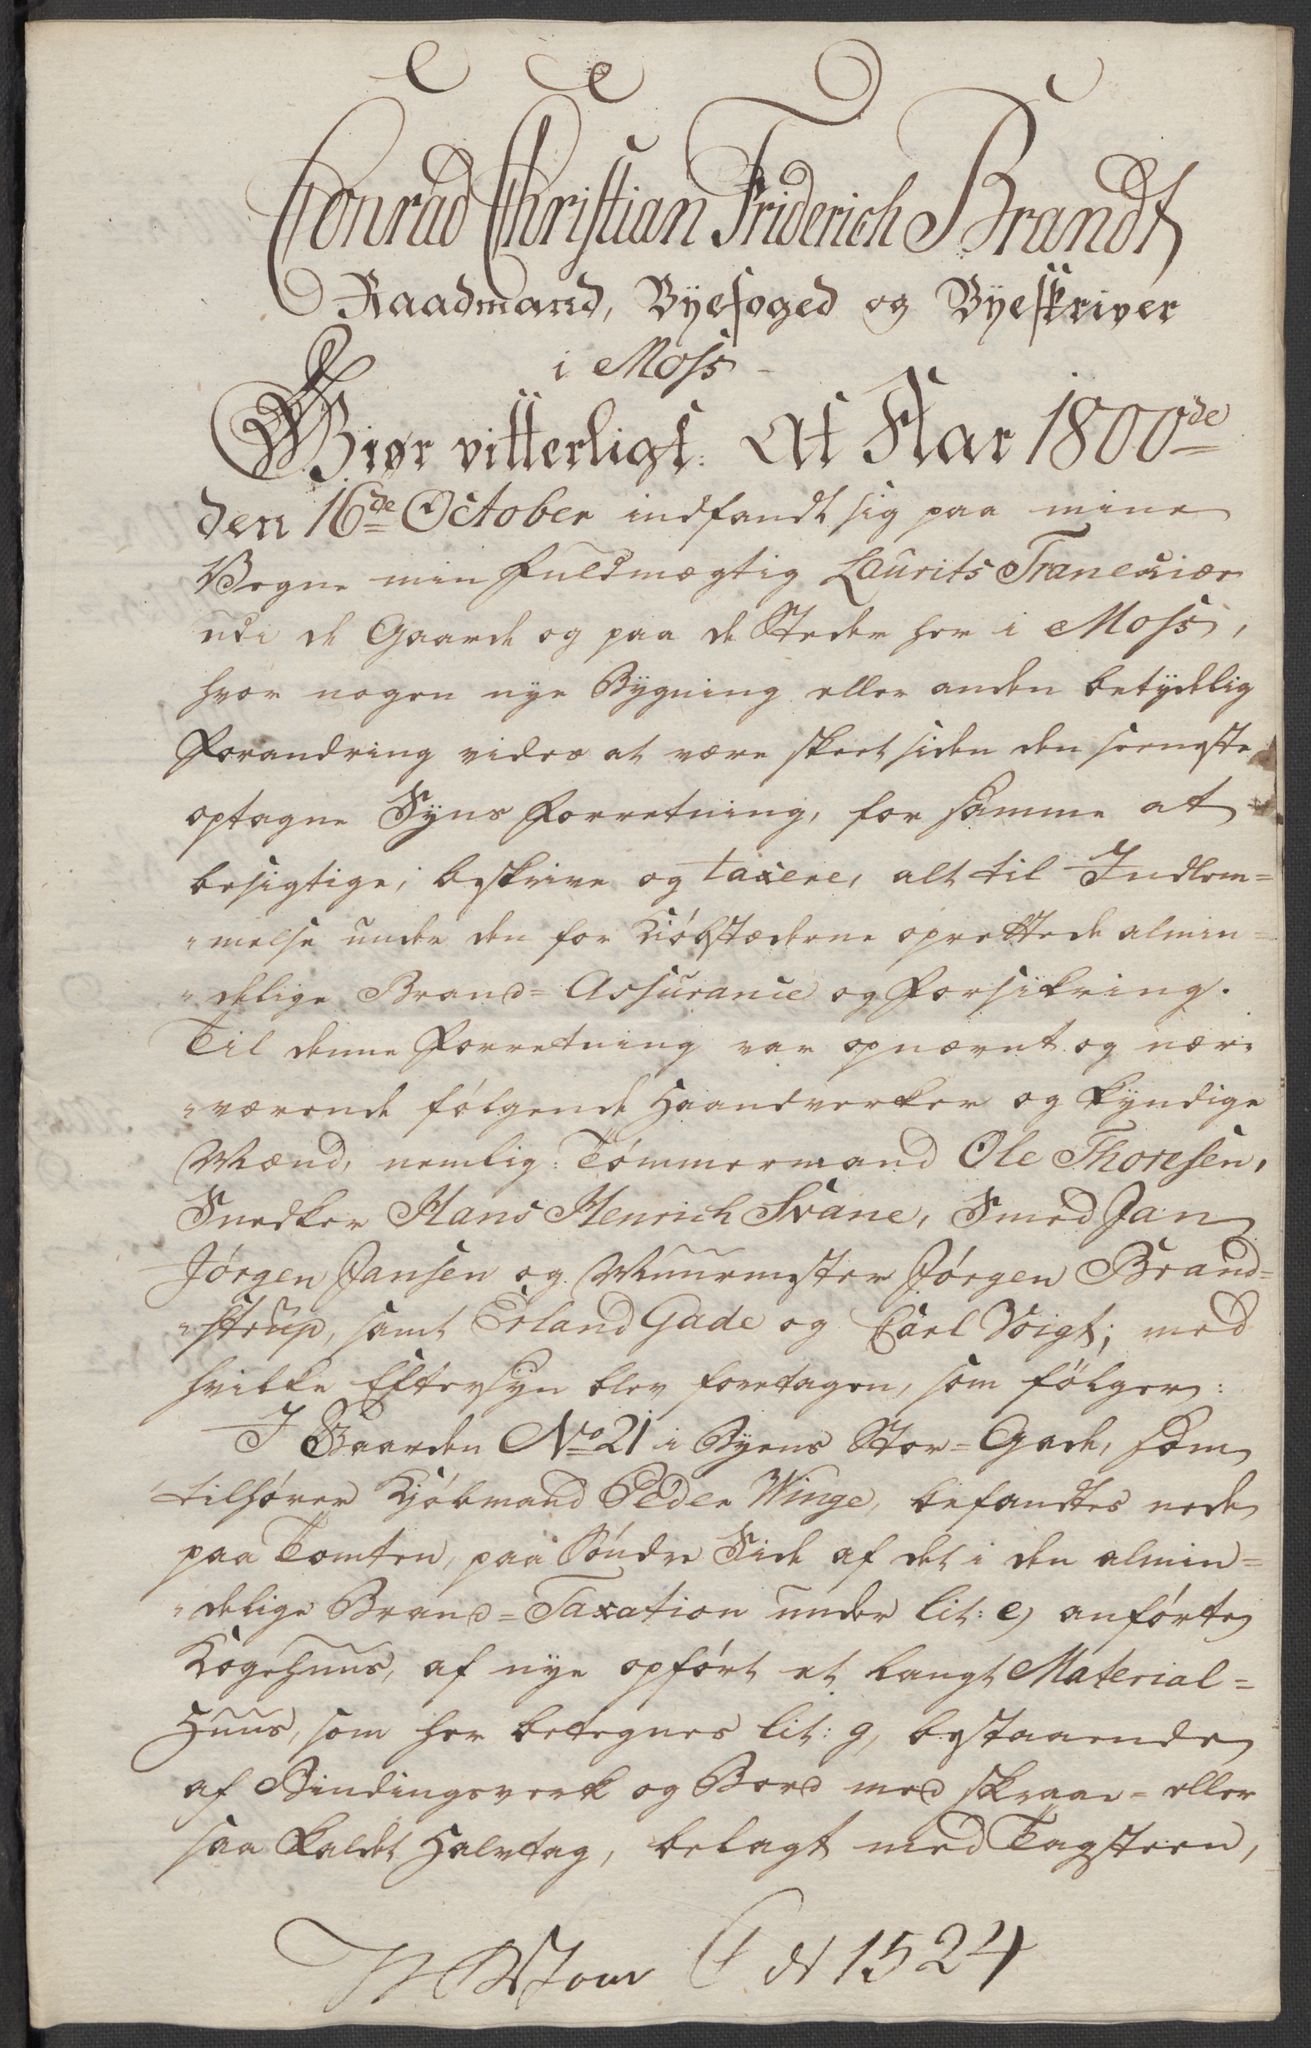 Conrad Christian Friderich Brandt
Raadmand, Byefoged og Byeskriver
i Moss
Giør vitterligt: At Aar 1800de
den 16de October indfandt sig paa mine
Vegne min Fuldmægtig Laurits Tranekiær
udi de Gaarde og paa de Steder her i Moss,
hvor nogen nye Bygning eller anden betydelig
Forandring vides at være skeet siden den seeneste
optagne Syns Forretning, for samme at
besigtige, beskrive og taxere, alt til Indlem=
"melse under den for Kiøbstæderne oprettede almin=
"delige Brand=Assurance og Forsikring.
Til denne Forretning var opnævnt og nær=
"værende følgende Haandverker og kyndige
Mænd, nemlig: Tømmermand Ole Thoresen,
Snedker Hans Henrich Svane, Smed Jan
Jørgen Jansen og Muurmester Jørgen Brand=
"strup, samt Erland Gade og Carl Voigt; med
hvilke Eftersyn blev foretagen, som følger:
I Gaarden No 21 i Byens Stor=Gade, som
tilhører Kjøbmand Peder Winge, befandtes nede
paa Tomten, paa Søndre Side af det i den almin=
"delige Brand=Taxation under lit: e, anførte
Kogehuus, af nye opført et langt Material=
Huus, som her betegnes lit: g, bestaaende
af Bindingsverk og Bord med skraae= eller
saa kaldet Halvtag, belagt med Tagsteen,
1524